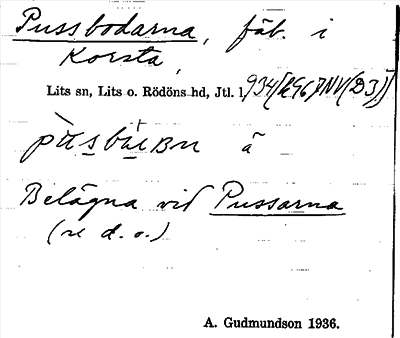 Pussbodarna, fäb. i
Korsta,
Lits sn, Lits o. Rödöns hd, Jtl. l.
ä
Belägna vid Pussarna
(se d. o.)
A. Gudmundson 1936.